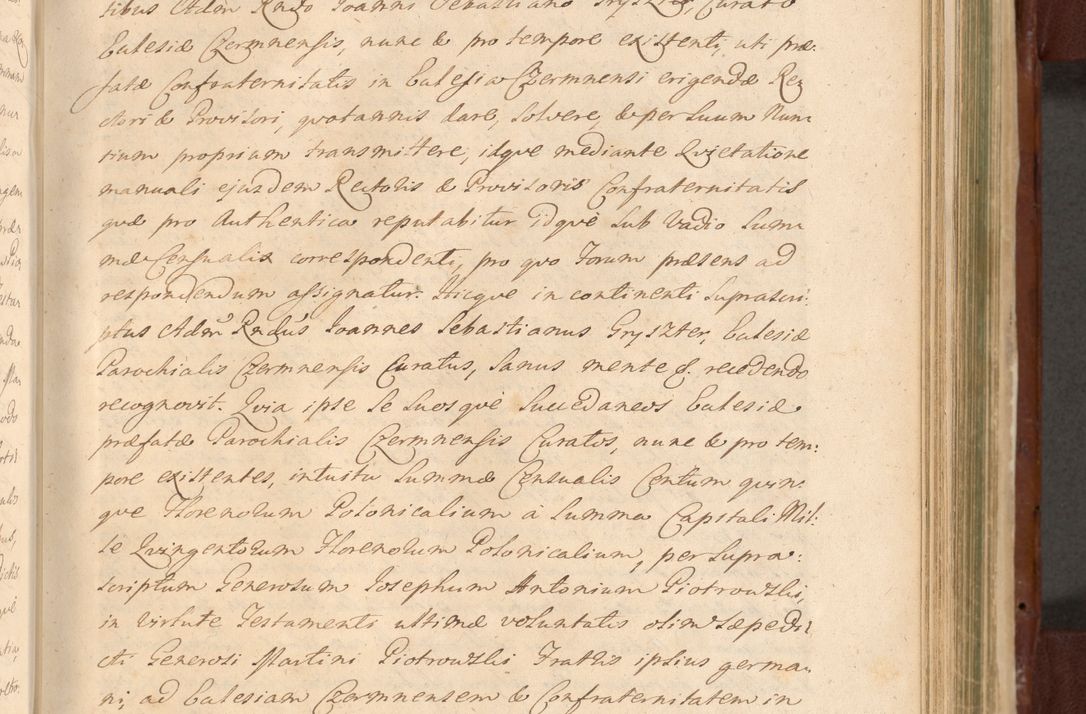 tibus Adm Rndo Joanni Sebastiano Gryszter, Curato
Ecclesiæ Czermnensis, nunc & pro tempore existenti, uti præ:
fatæ Confraternitatis in Ecclesia Czermnensi erigendæ Re
ctori & Provisori, quotannis dare, solvere, & per suum Nun
tium proprium transmittere, idque mediante Quietatione
manuali ejusdem Rectoris & Provisoris Confraternitatis
quæ pro Authentica reputabitur idque sub Vadio Sum
mæ Censualis correspondenti, pro quo Forum præsens ad
respondendum assignatur. Hicque in continenti Suprascri:
ptus Adm Rndus Joannes Sebastianus Gryszter, Ecclesiæ
Parochialis Czermnensis Curatus, sanus mente &. recedendo
recognovit. Quia ipse se suosque Succedaneos Ecclesiæ
præfatæ Parochialis Czermnensis Curatos, nunc & pro tem:
pore existentes, intuitu Summæ Censualis Centum quin:
que Florenorum Polonicalium à Summa Capitali Mil:
le Quingentorum Florenorum Polonicalium, per Supra:
scriptum Generosum Josephum Antonium Piotrowski,
in virtute Testamenti ultimæ voluntatis olim sæpedi
cti Generosi Martini Piotrowski Fratris ipsius germa
ni, ad Ecclesiam Czermnensem & Confraternitatem in